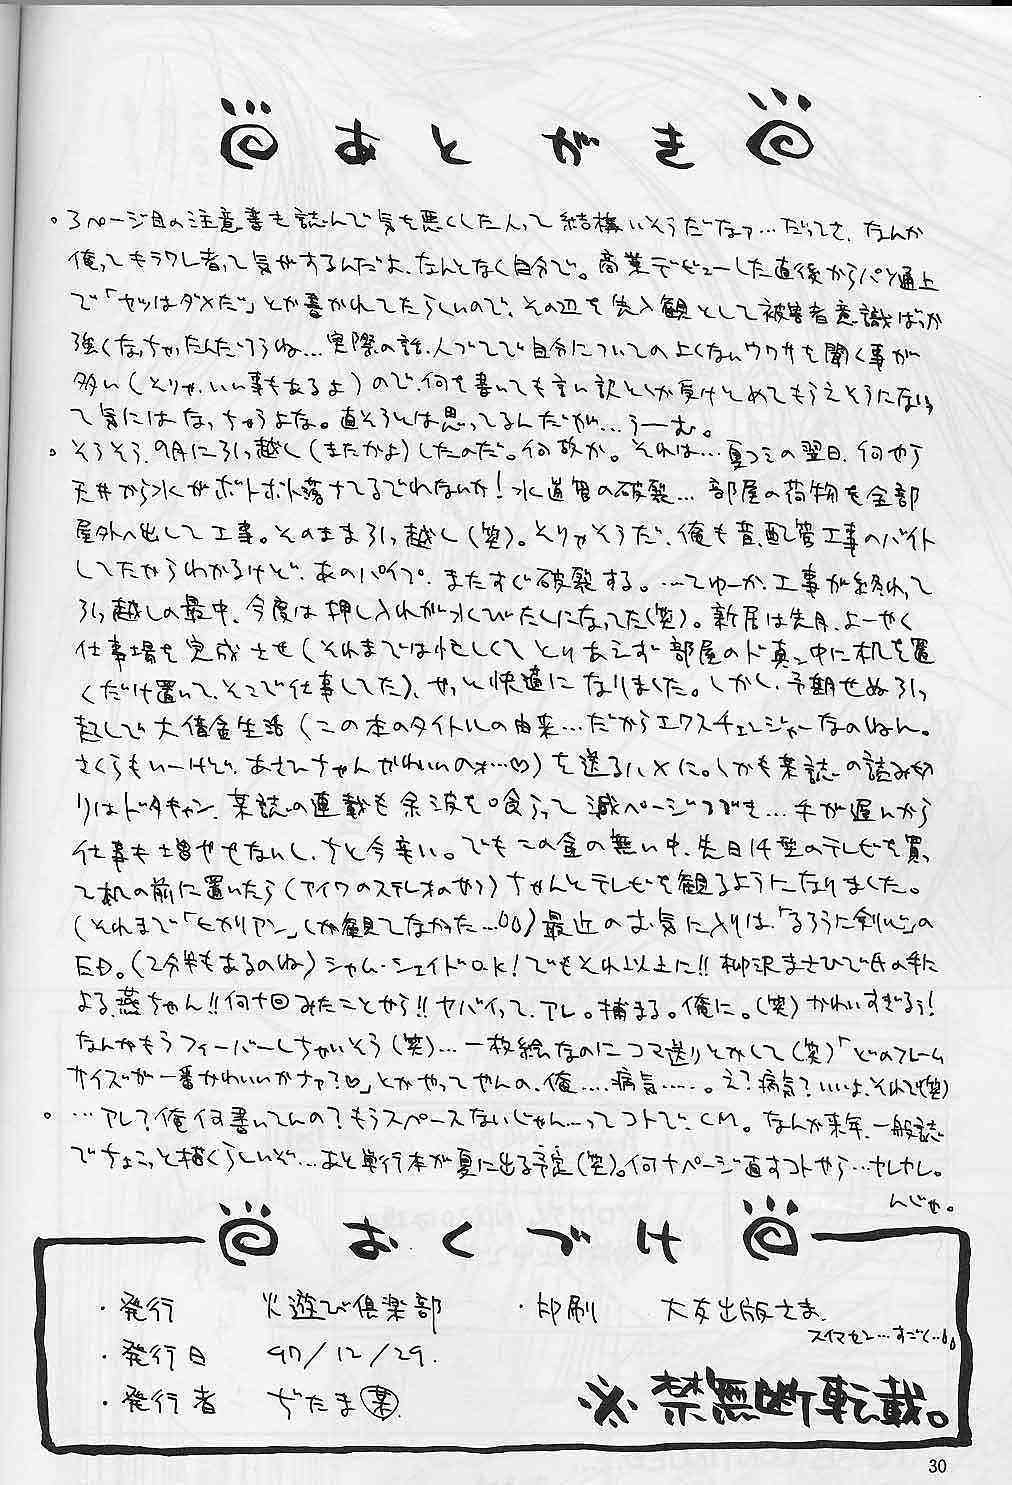 あとがき
。3ページ目の注意書も読んで気を悪くした人って結構いそうだなァ…だってさ、なんか
俺ってキラワレ者って気がするんだよ、なんとなく自分で。商業デビューした直後からパソ通上
で「ヤツはダメだ」とか書かれてたらしいので、その辺を先入観として被害者意識ばっか
強くなっちゃったんだろね…実際の話、人づてで自分についての上くないウワサを聞く事が
多い(そりゃ、いい事もあるよ)ので、何を書いても言い訳としか受けとめてもらえそうにないっ
て気にはなっちゃうよな。直そうとは思ってるんだが…うーむ。
。そうそう、9月に引っ越し(またかよ)したのだ。何故か。それは…夏コミの翌日、何やら
天井から水がボトボト落ちてるでわないか!水道管の破裂…部屋の荷物を全部
屋外へ出して工事。そのまま引っ越し(笑)。そりゃそうだ、俺も昔、配管工事のバイト
してたからわかるけど、あのパイプ、またすぐ破裂する。…てゆーか、工事が終わって
引っ越しの最中、今度は押し入れが水びたしになってた(笑)。新居は先月、よーやく
仕事場を完成させ(それまでは忙しくてとりあえず部屋のド真ン中に机を置
くだけ置いて、そこで仕事してた)、やっと快適になりました。しかし、予期せぬ引っ
越しで大借金生活(この本のタイトルの由来…だからエクスチェンジャーなのねん。
さくらもいーけど、あさひちゃんかわいいのォ…♡)を送るハメに。しかも某誌の読み切
りはドタキャン、某誌の連載も余波を喰らって減ページつづき…手が遅いから
仕事も増やせないし、ちと今辛い。でもこの金の無い中、先日14型のテレビを買っ
て机の前に置いたら(アイワのステレオのやつ)ちゃんとテレビを観るようになりました。
(それまで「ヒカリアン」しか観てなかった…)最近のお気に入りは「るろうに剣心」の
ED。(2分半もあるのね)シャム・シェイドO.K!でもそれ以上に!!柳沢まさひで氏の手に
よる燕ちゃん!!何十回みたことやら!!ヤバイって、アレ。捕まる。俺に。(笑)かわいすぎるぅ!
なんかもうフィーバーしちゃいそう(笑)…一枚絵なのにコマ送りとかして(笑)「どのフレーム
サイズが一番かわいいかナァ?♡」とかやってやんの、俺……病気……。え?病気?いいよ、それで(笑)
。…アレ?俺何書いてんの?もうスペースないじゃん…ってコトで、CM。なんか来年、一般誌
でちょこっと描くらしいぞ…あと単行本が夏に出る予定(笑)。何十ページ直すコトやら…ナレナレ。
んじゃ。
おくづけ
・発行 火遊び倶楽部 ・印刷 大友出版さま
スイマセン…すごく…
・発行日 97/12/29.
・発行者 ぢたま(某).
※禁無断転載。
30